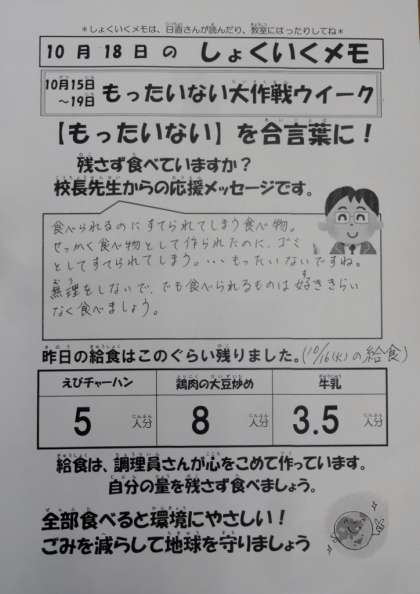 ＊しょくいくメモは、日直さんが読んだり、教室にはったりしてね＊
10月18日の しょくいくメモ
10月15日
～19日
もったいない大作戦ウイーク
【もったいない】を合言葉に！
残さず食べていますか？
校長先生からの応援メッセージです。
食べられるのにすてられてしまう食べ物。
せっかく食べ物として作られたのに、ゴミ
としてすてられてしまう。…もったいないですね。
無理をしないで、でも食べられるものは好ききらい
なく食べましょう。
昨日の給食はこのぐらい残りました。(10/16(火)の給食)
えびチャーハン 鶏肉の大豆炒め 牛乳
5人分 8人分 3.5人分
給食は、調理員さんが心をこめて作っています。
自分の量を残さず食べましょう。
全部食べると環境にやさしい！
ごみを減らして地球を守りましょう